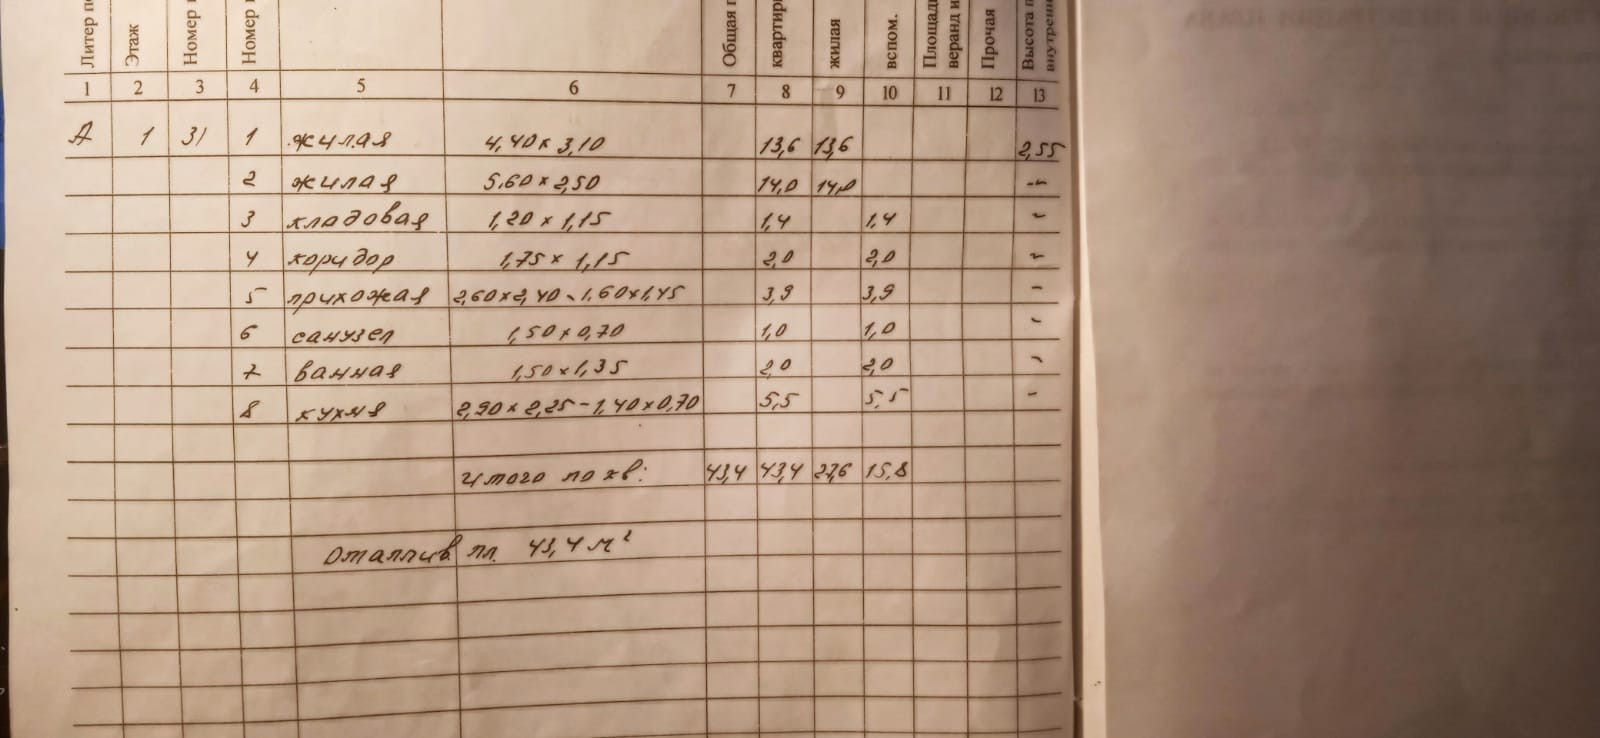 Литер по Этаж Номер Номер Общая п квартиры жилая вспом. Площадь веранд и Прочая Высота п внутренн
1 2 3 4 5 6 7 8 9 10 11 12 13
А 1 31 1 жилая 4,40 х 3,10 13,6 13,6 2,55
2 жилая 5,60 х 2,50 14,0 14,0 -"-
3 кладовая 1,20 х 1,15 1,4 1,4 -
4 коридор 1,75 х 1,15 2,0 2,0 -
5 прихожая 2,60х2,40-1,60х1,45 3,9 3,9 -
6 санузел 1,50 х 0,70 1,0 1,0 -
7 ванная 1,50 х 1,35 2,0 2,0 -
8 кухня 2,90 х 2,25 - 1,40 х 0,70 5,5 5,5 -
Итого по кв: 43,4 43,4 27,6 15,8
Отаплив. пл. 43,4 м²